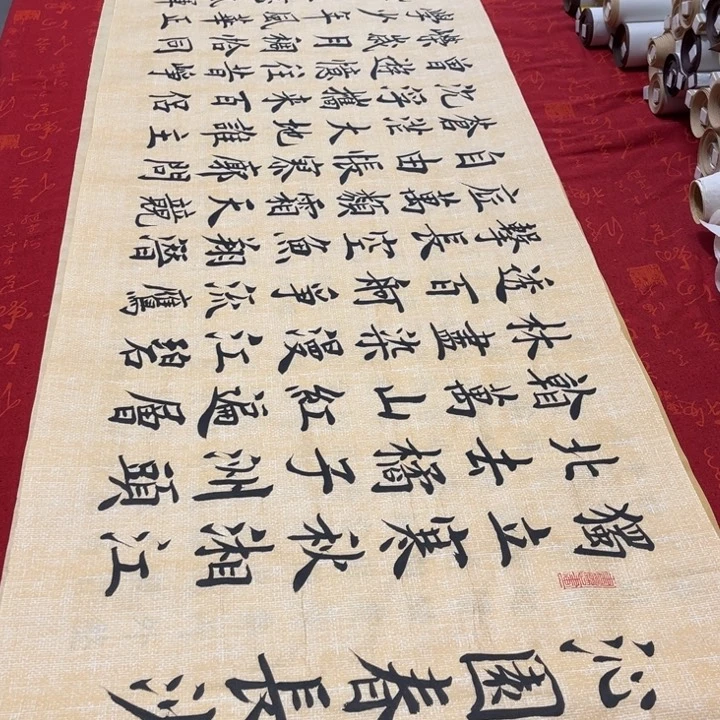 沁園春長沙
獨立寒秋湘江
北去橘子洲頭
萬山紅遍層
林盡染漫江碧
透百舸爭流鷹
擊長空魚翔
底萬類霜天競
自由悵寥廓問
蒼茫大地誰主
沉浮攜来百侶
曾遊憶往昔崢
嶸歲月稠恰同
學少年風華正